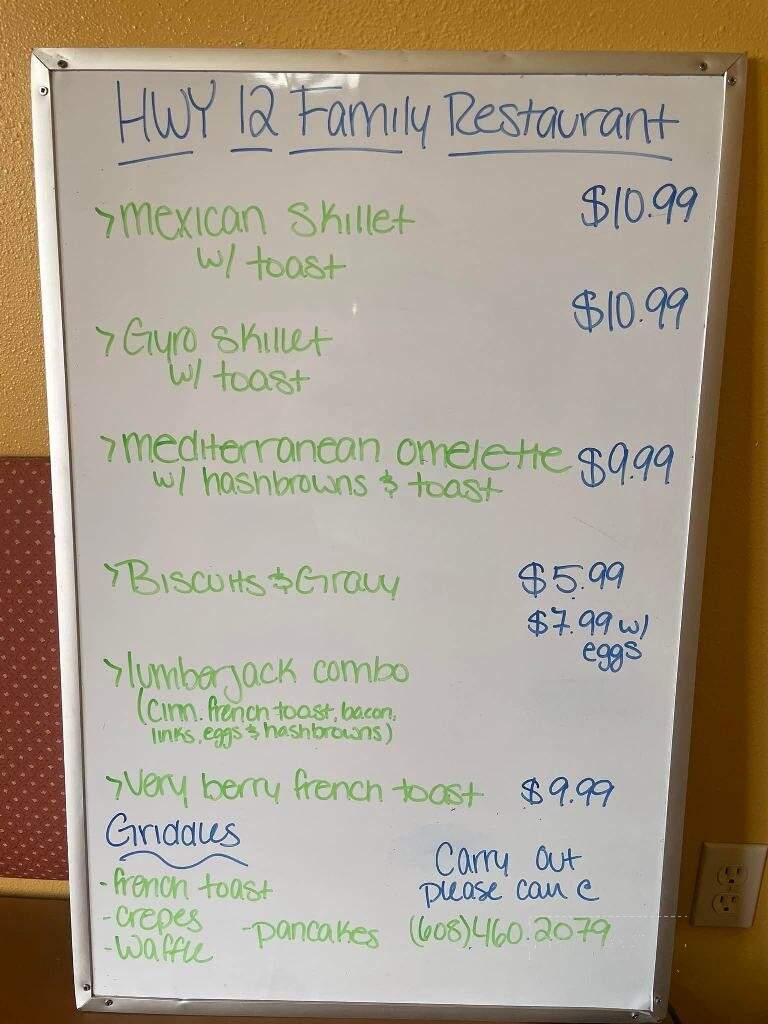 HWY 12 Family Restaurant
>mexican skillet $10.99
w/ toast
$10.99
>Gyro skillet
w/ toast
>mediterranean omelette $9.99
w/ hashbrowns & toast
>Biscuits & Gravy $5.99
$7.99 w/
eggs
>lumberjack combo
(cinn. french toast, bacon,
links, eggs & hashbrowns)
>very berry french toast $9.99
Griddles
Carry out
please call @
-french toast
-crepes
-pancakes (608)460.2079
-waffle